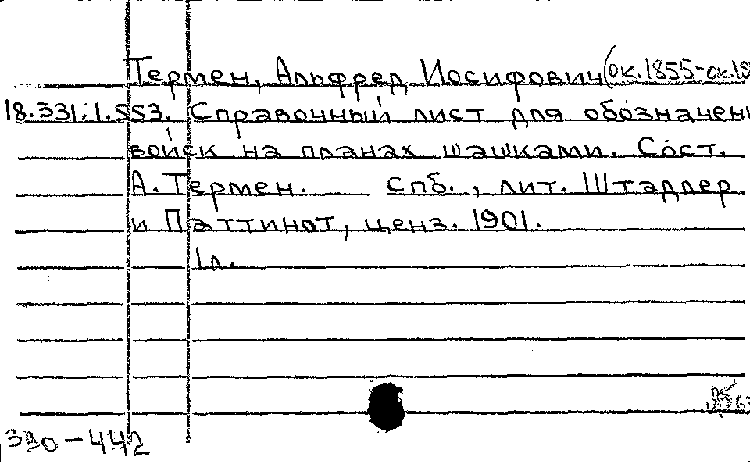 Термен, Альфред Иосифович (ок. 1855-ок.
18.331.1.553. Справочный лист для обозначен
войск на планах шашками. Сост.
А. Термен. Спб., лит. Штадлер
и Паттинот, ценз. 1901.
1 л.
390-442